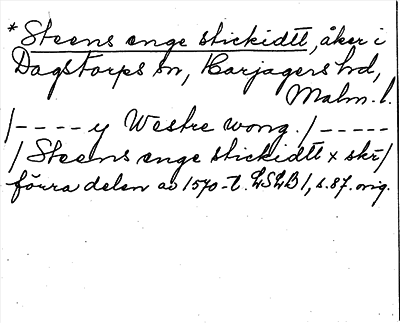 * Steens enge stickidtt, åker i
Dagstorps sn, Harjagers hd,
Malm. l.
/---- y Westre wong. /-----
/ Steens enge stickidtt x skr/
förra delen av 1570-t. LSLB 1, s. 87. orig.